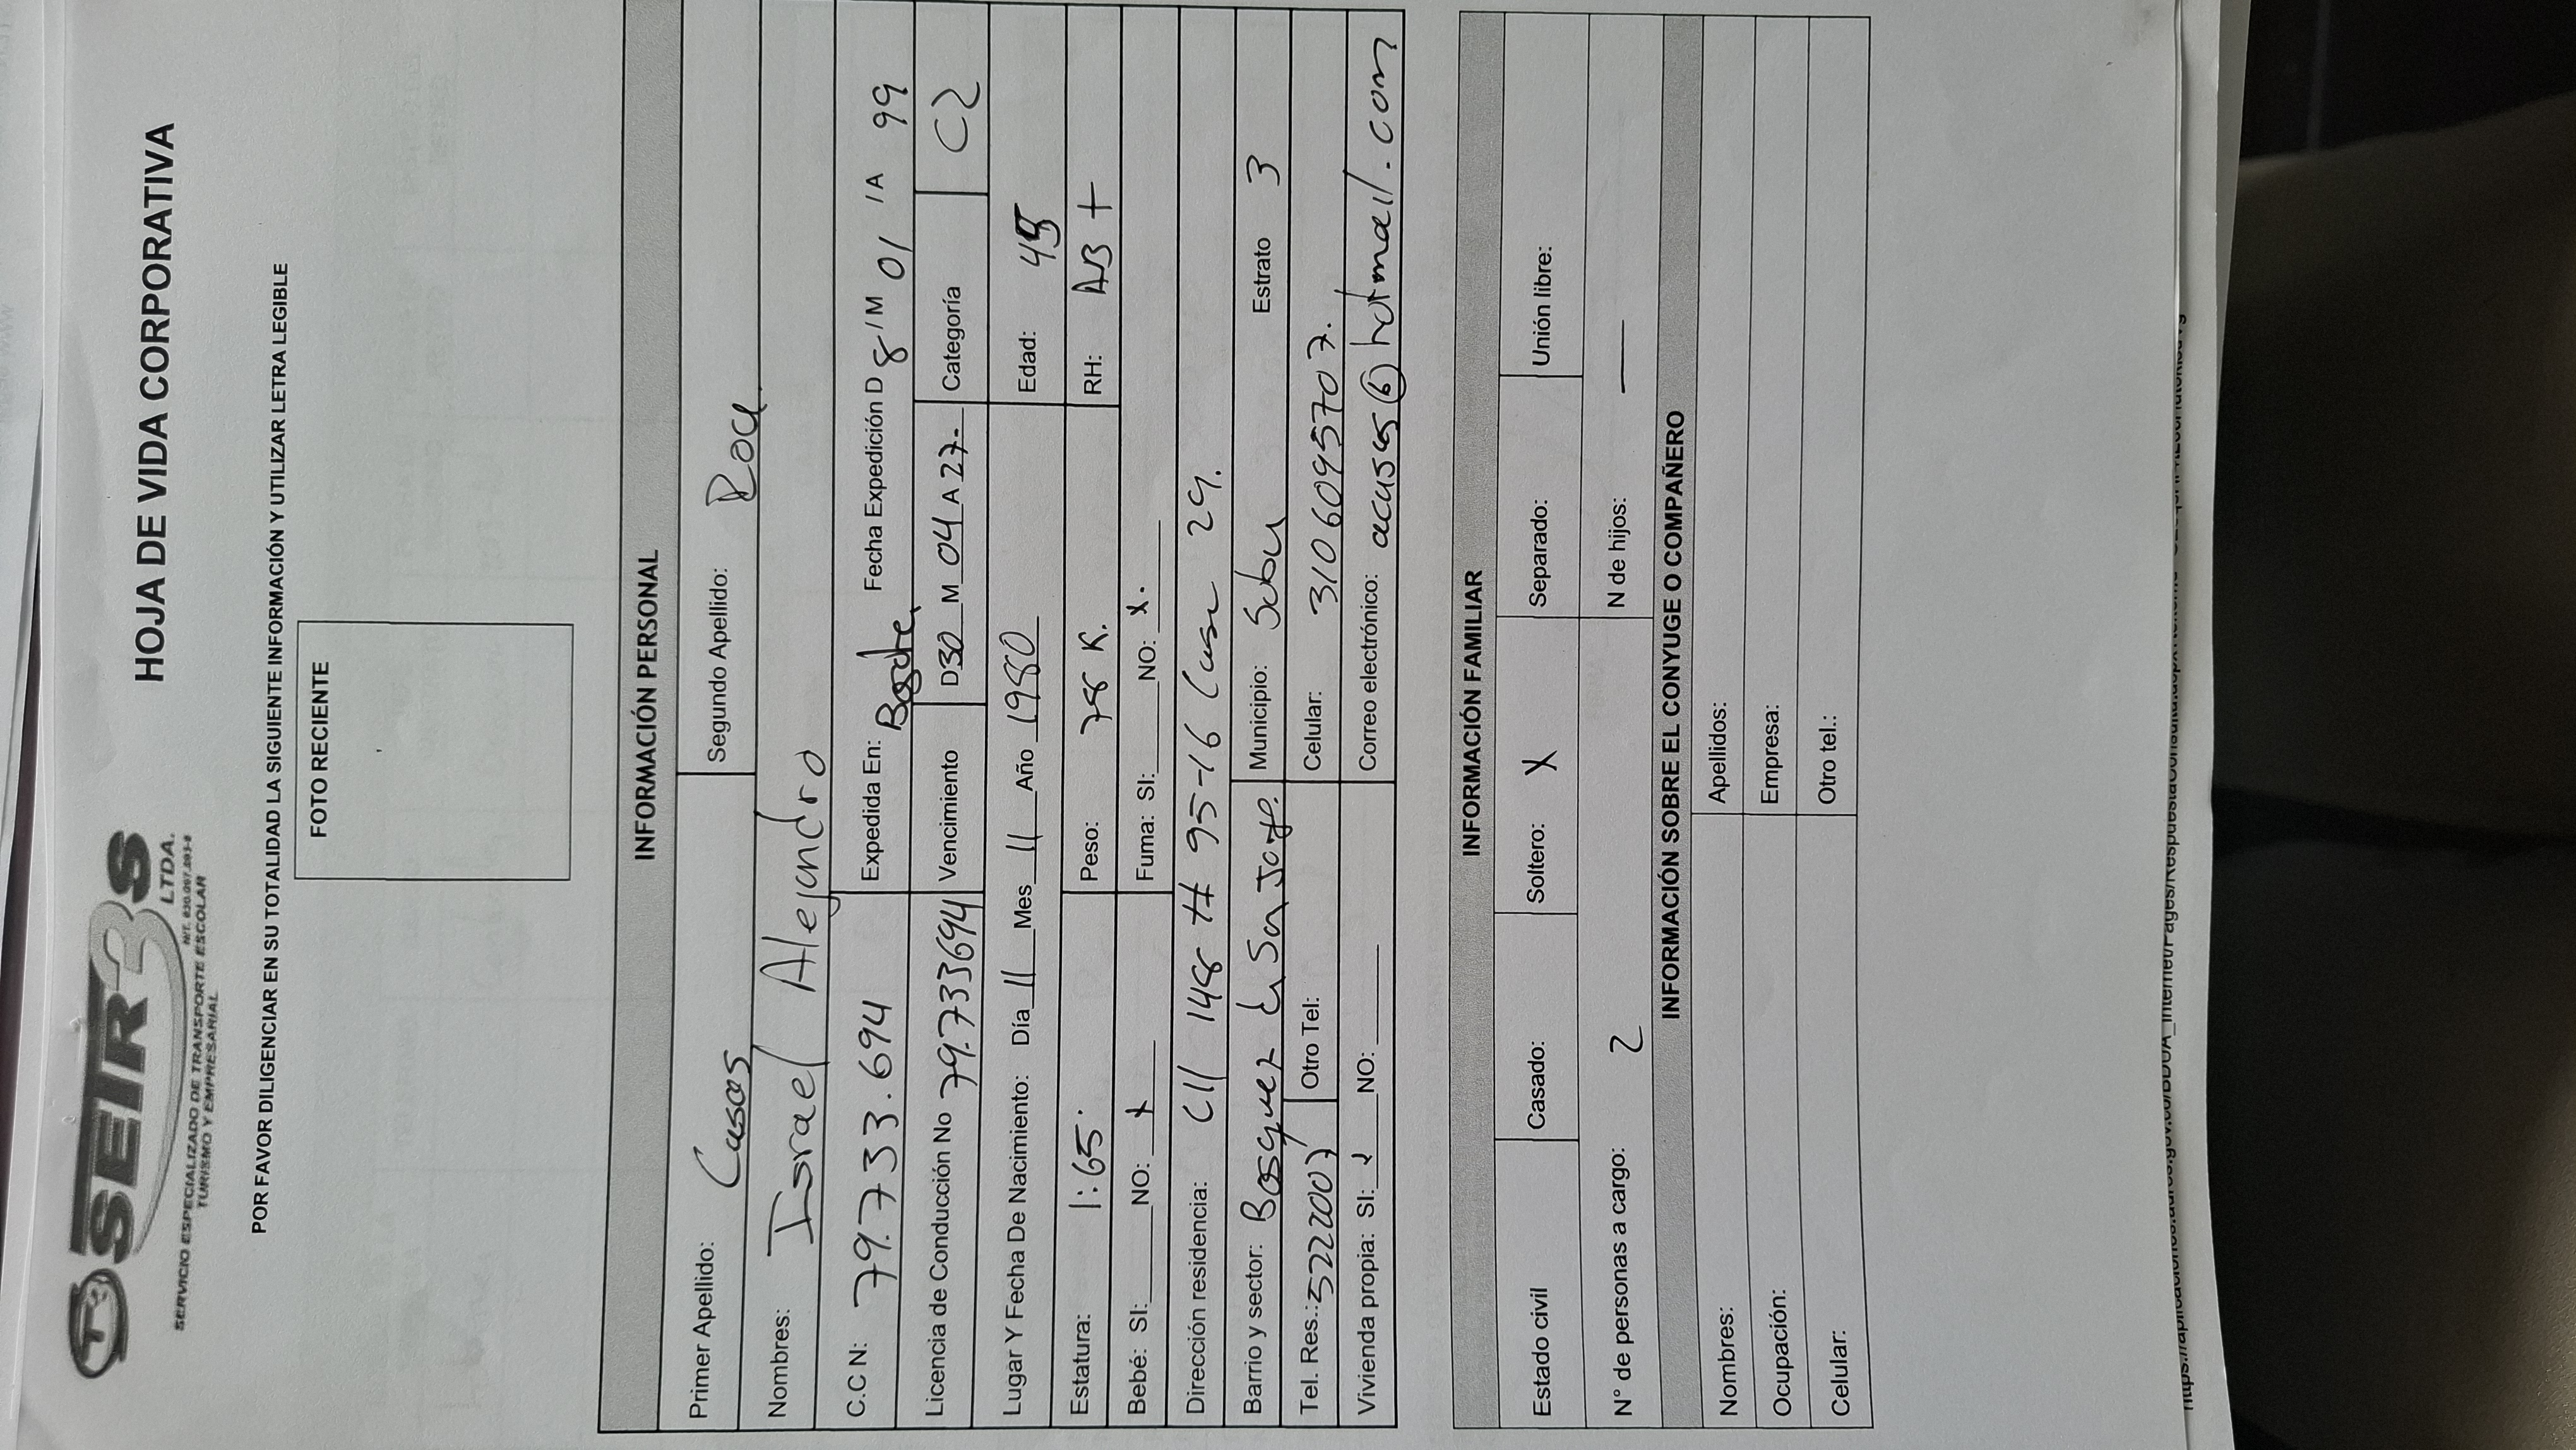 SEIR3S LTDA.
NIT. 830.067.893-8
SERVICIO ESPECIALIZADO DE TRANSPORTE ESCOLAR
TURISMO Y EMPRESARIAL
HOJA DE VIDA CORPORATIVA
POR FAVOR DILIGENCIAR EN SU TOTALIDAD LA SIGUIENTE INFORMACIÓN Y UTILIZAR LETRA LEGIBLE
FOTO RECIENTE
INFORMACIÓN PERSONAL
Primer Apellido: Casas Segundo Apellido: Roa
Nombres: Israel Alejandro
C.C N: 79.733.694 Expedida En: Fecha Expedición D 8 /M 01 /A 99
Licencia de Conducción No 79.733694 Vencimiento D30 M 04 A 27- Categoría C2
Lugar Y Fecha De Nacimiento: Día 11 Mes 11 Año 1980 Edad: 45
Estatura: 1:65. Peso: 78 K. RH: AB +
Bebé: SI:____NO: x Fuma: SI:____NO: x.
Dirección residencia: Cll 148 # 95-16 Casa 29.
Barrio y sector: San Jorge. Municipio: Suba Estrato 3
Tel. Res.: 3222007 Otro Tel: Celular: 3106095707.
Vivienda propia: SI: x NO:____ Correo electrónico: hotmail.com
INFORMACIÓN FAMILIAR
Estado civil Casado: Soltero: X Separado: Unión libre:
N° de personas a cargo: 2 N de hijos: —
INFORMACIÓN SOBRE EL CONYUGE O COMPAÑERO
Nombres: Apellidos:
Ocupación: Empresa:
Celular: Otro tel.: